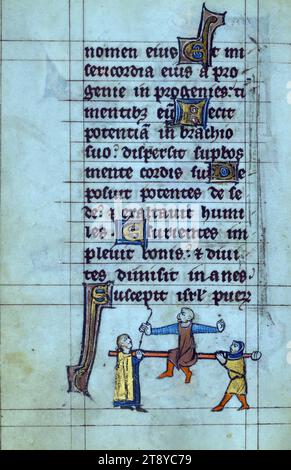 nomen eius Et mi
sericordia eius a pro
genie in progenies: ti
mentibus eū Fecit
potentiā in brachio
suo: dispersit supbos
mente cordis sui De
posuit potentes de se
de: & exaltauit humi
les. Esurientes im
pleuit bonis: & diui
tes dimisit inanes
Suscepit isrl' puer
alamy
Image ID: 2T8YC79
www.alamy.com